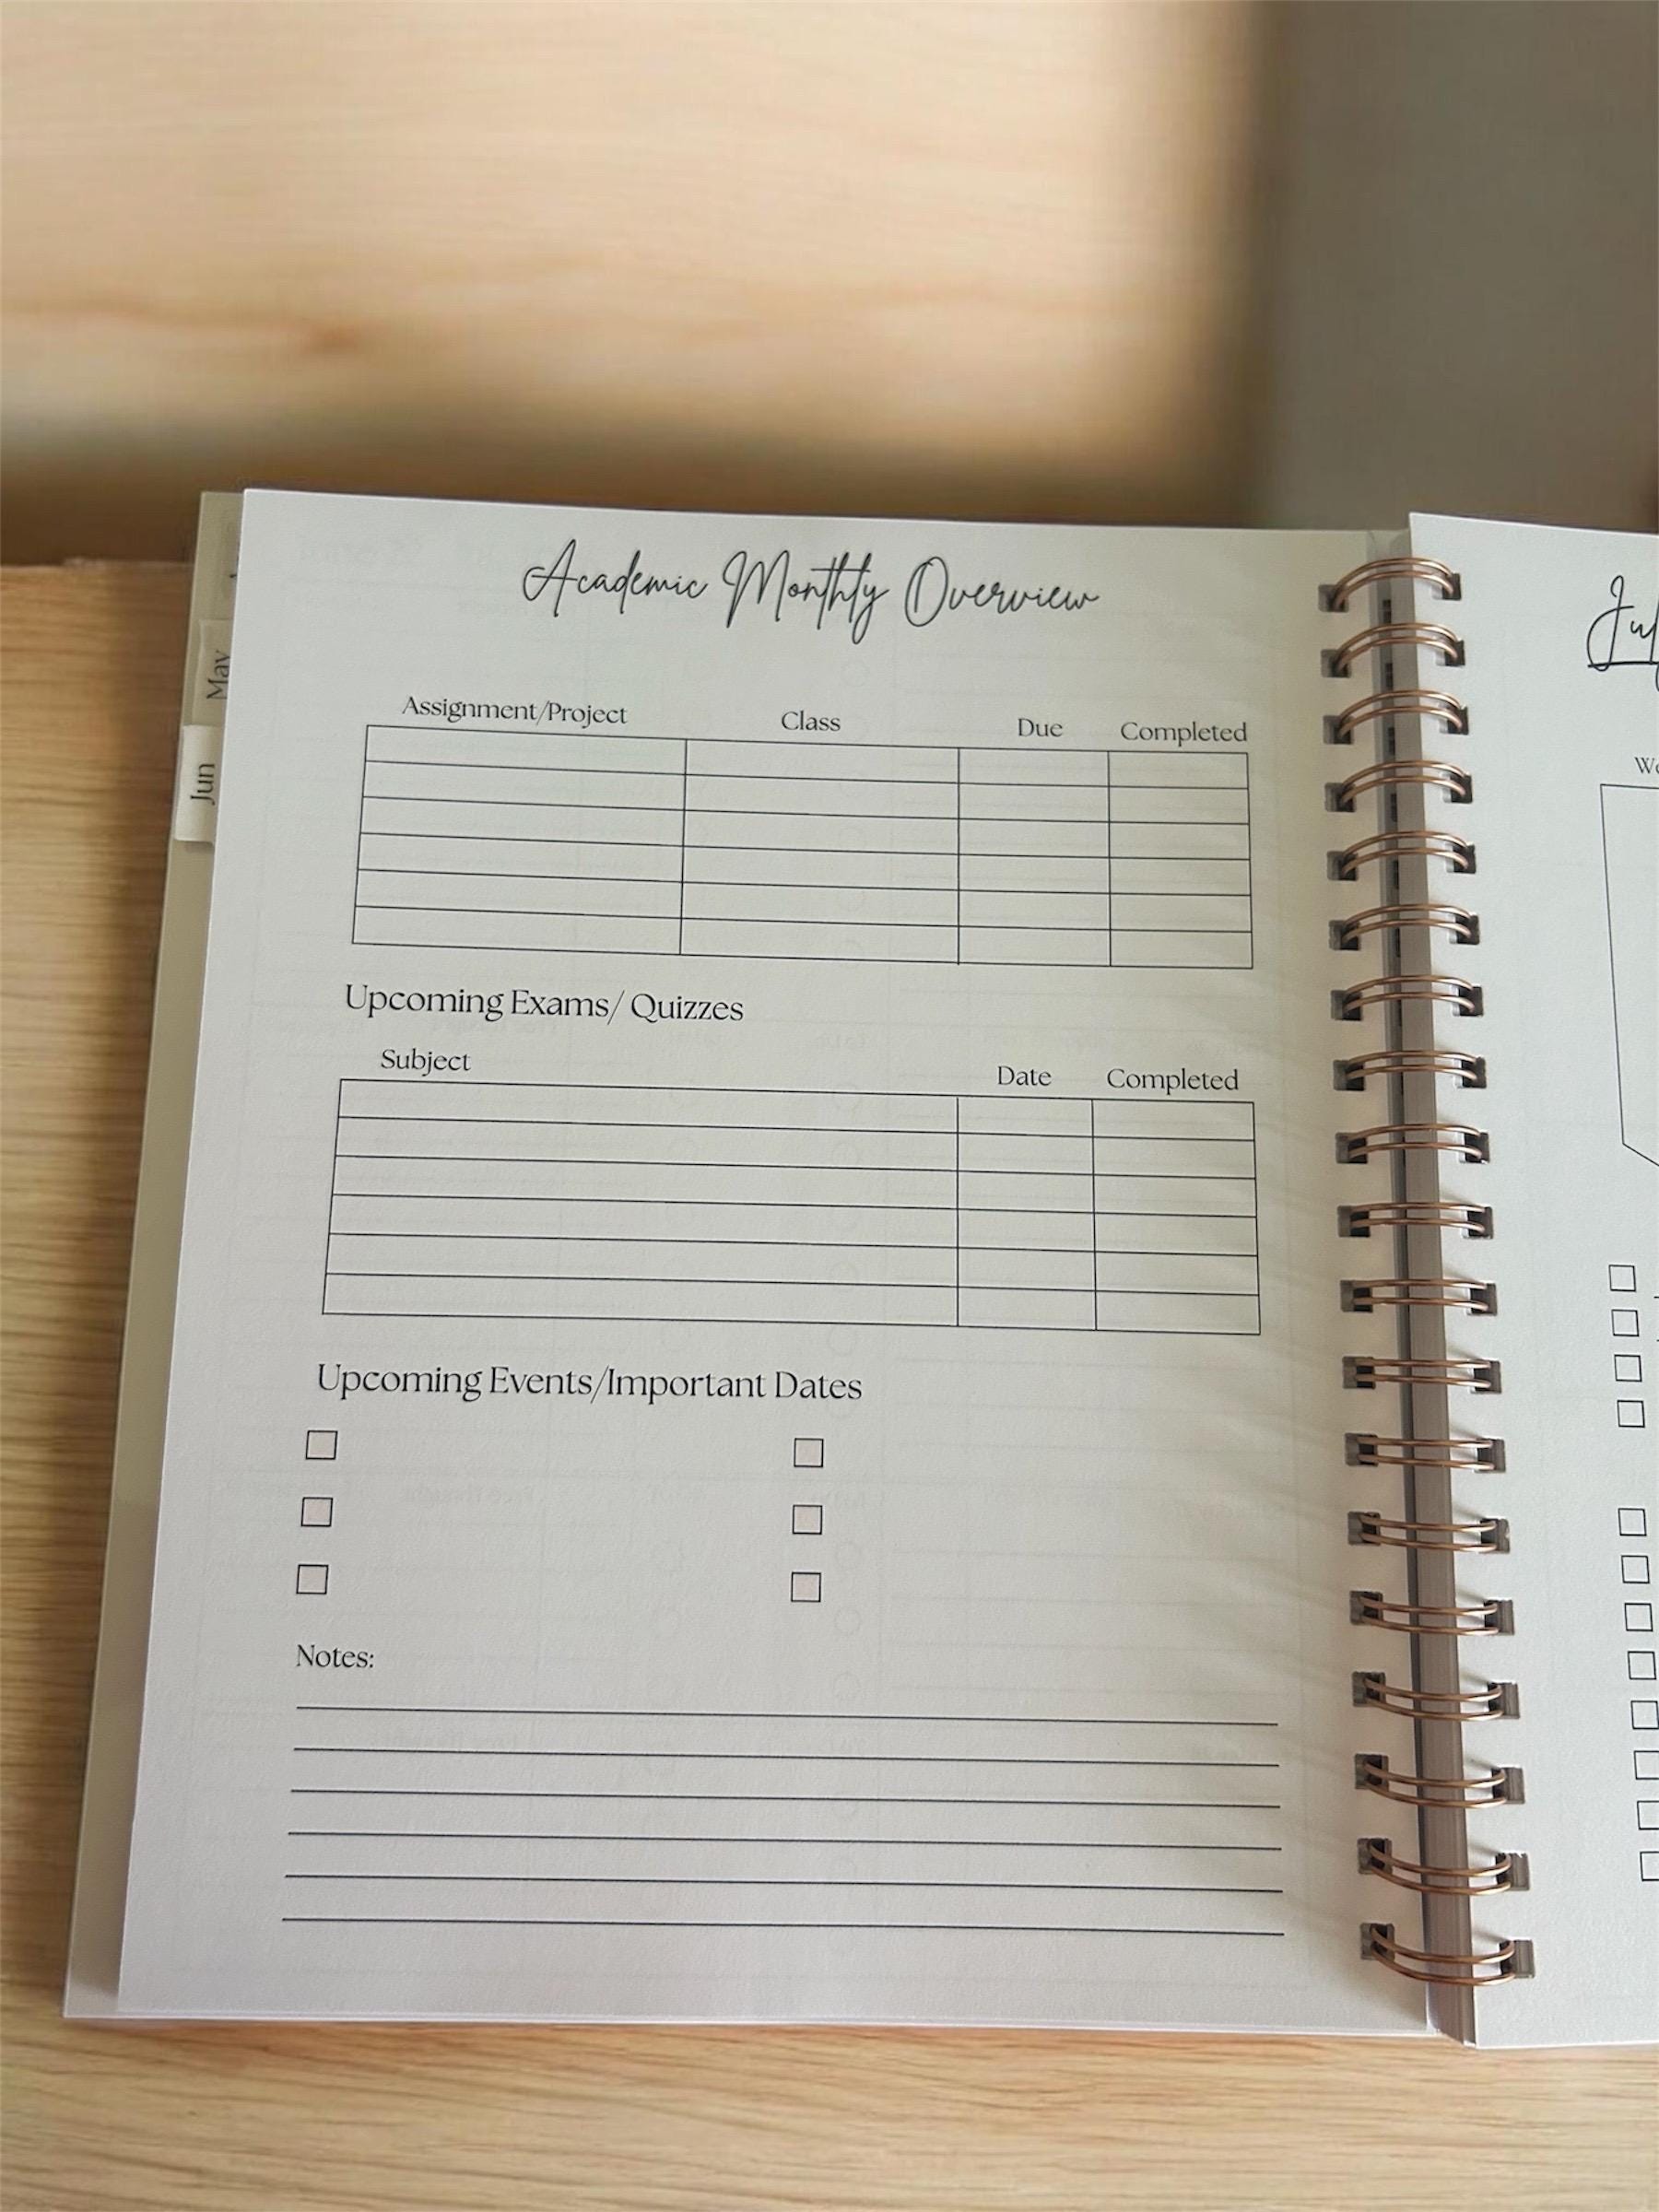 Academic Monthly Overview
May
Jun
Assignment/Project Class Due Completed
Upcoming Exams/ Quizzes
Subject Date Completed
Upcoming Events/Important Dates
Notes: